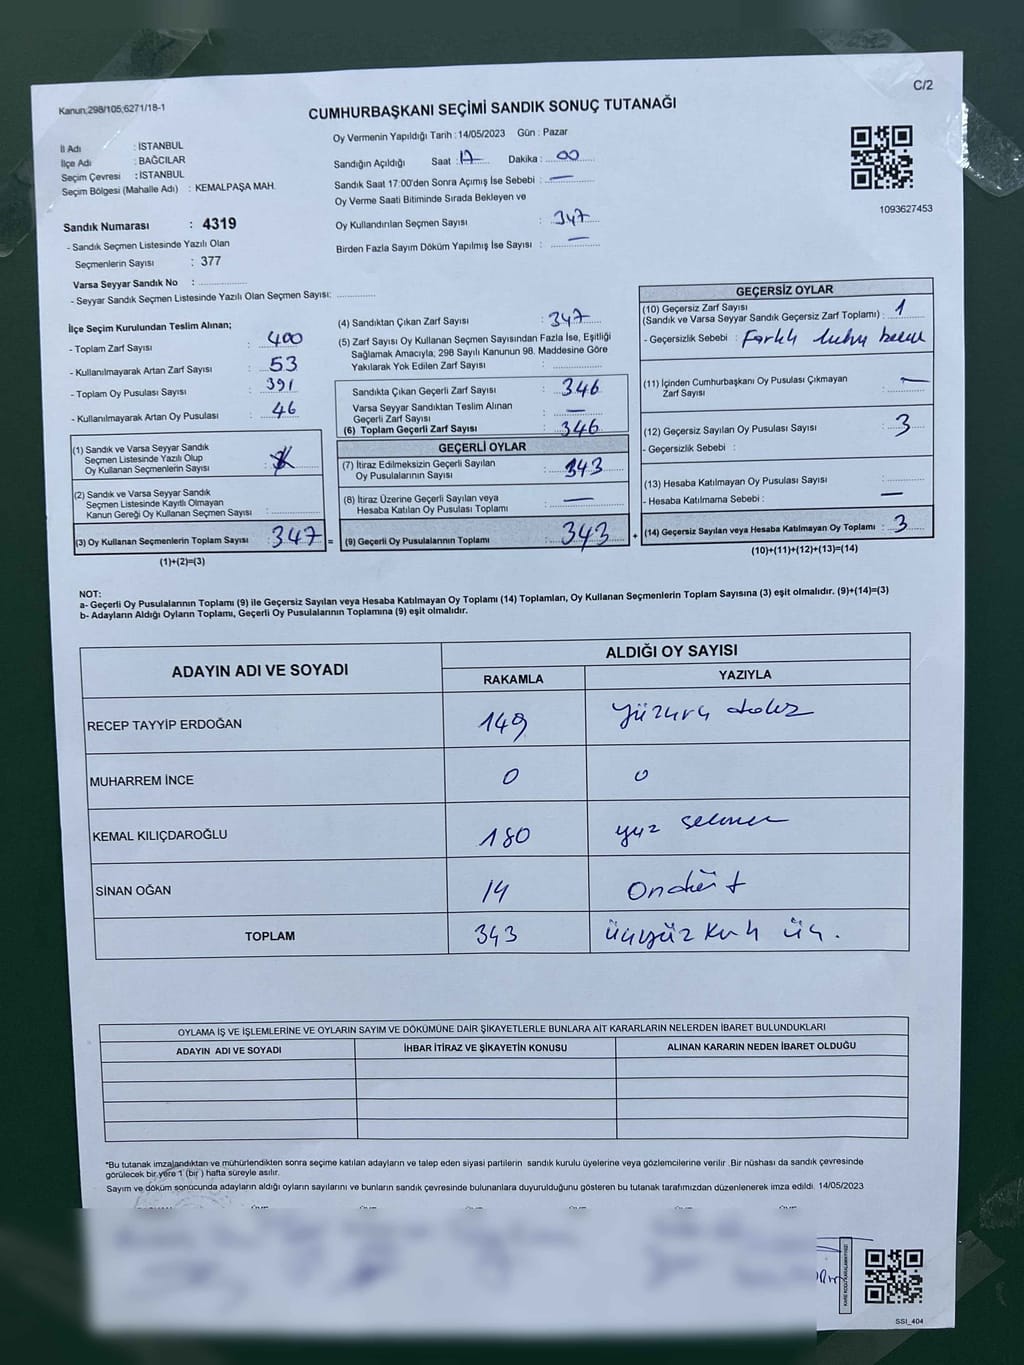 Kanun;298/105;6271/18-1
C/2
CUMHURBAŞKANI SEÇİMİ SANDIK SONUÇ TUTANAĞI
İl Adı : İSTANBUL
İlçe Adı : BAĞCILAR
Seçim Çevresi : İSTANBUL
Seçim Bölgesi (Mahalle Adı) : KEMALPAŞA MAH.
Sandık Numarası : 4319
- Sandık Seçmen Listesinde Yazılı Olan
Seçmenlerin Sayısı : 377
Varsa Seyyar Sandık No : ..................
- Seyyar Sandık Seçmen Listesinde Yazılı Olan Seçmen Sayısı: .............
Oy Vermenin Yapıldığı Tarih : 14/05/2023 Gün : Pazar
Sandığın Açıldığı Saat : 17 Dakika : 00
Sandık Saat 17:00'den Sonra Açımış İse Sebebi : —
Oy Verme Saati Bitiminde Sırada Bekleyen ve
Oy Kullandırılan Seçmen Sayısı : 347
Birden Fazla Sayım Döküm Yapılmış İse Sayısı : —
1093627453
İlçe Seçim Kurulundan Teslim Alınan;
- Toplam Zarf Sayısı : 400
- Kullanılmayarak Artan Zarf Sayısı : 53
- Toplam Oy Pusulası Sayısı : 391
- Kullanılmayarak Artan Oy Pusulası : 46
(1) Sandık ve Varsa Seyyar Sandık
Seçmen Listesinde Yazılı Olup
Oy Kullanan Seçmenlerin Sayısı :
(2) Sandık ve Varsa Seyyar Sandık
Seçmen Listesinde Kayıtlı Olmayan
Kanun Gereği Oy Kullanan Seçmen Sayısı :
(3) Oy Kullanan Seçmenlerin Toplam Sayısı : 347 =
(1)+(2)=(3)
(4) Sandıktan Çıkan Zarf Sayısı : 347
(5) Zarf Sayısı Oy Kullanan Seçmen Sayısından Fazla İse, Eşitliği
Sağlamak Amacıyla, 298 Sayılı Kanunun 98. Maddesine Göre
Yakılarak Yok Edilen Zarf Sayısı :
Sandıkta Çıkan Geçerli Zarf Sayısı : 346
Varsa Seyyar Sandıktan Teslim Alınan
Geçerli Zarf Sayısı : —
(6) Toplam Geçerli Zarf Sayısı : 346
GEÇERLİ OYLAR
(7) İtiraz Edilmeksizin Geçerli Sayılan
Oy Pusulalarının Sayısı : 343
(8) İtiraz Üzerine Geçerli Sayılan veya
Hesaba Katılan Oy Pusulası Toplamı : —
(9) Geçerli Oy Pusulalarının Toplamı : 343 +
GEÇERSİZ OYLAR
(10) Geçersiz Zarf Sayısı
(Sandık ve Varsa Seyyar Sandık Geçersiz Zarf Toplamı) : 1
- Geçersizlik Sebebi : Farklı
(11) İçinden Cumhurbaşkanı Oy Pusulası Çıkmayan
Zarf Sayısı : —
(12) Geçersiz Sayılan Oy Pusulası Sayısı : 3
- Geçersizlik Sebebi :
(13) Hesaba Katılmayan Oy Pusulası Sayısı :
- Hesaba Katılmama Sebebi : —
(14) Geçersiz Sayılan veya Hesaba Katılmayan Oy Toplamı : 3
(10)+(11)+(12)+(13)=(14)
NOT:
a- Geçerli Oy Pusulalarının Toplamı (9) ile Geçersiz Sayılan veya Hesaba Katılmayan Oy Toplamı (14) Toplamları, Oy Kullanan Seçmenlerin Toplam Sayısına (3) eşit olmalıdır. (9)+(14)=(3)
b- Adayların Aldığı Oyların Toplamı, Geçerli Oy Pusulalarının Toplamına (9) eşit olmalıdır.
ADAYIN ADI VE SOYADI ALDIĞI OY SAYISI
RAKAMLA YAZIYLA
RECEP TAYYİP ERDOĞAN 149
MUHARREM İNCE 0 0
KEMAL KILIÇDAROĞLU 180 yüz seksen
SİNAN OĞAN 14 Ondört
TOPLAM 343 üçyüz kırk üç.
OYLAMA İŞ VE İŞLEMLERİNE VE OYLARIN SAYIM VE DÖKÜMÜNE DAİR ŞİKAYETLERLE BUNLARA AİT KARARLARIN NELERDEN İBARET BULUNDUKLARI
ADAYIN ADI VE SOYADI İHBAR İTİRAZ VE ŞİKAYETİN KONUSU ALINAN KARARIN NEDEN İBARET OLDUĞU
*Bu tutanak imzalandıktan ve mühürlendikten sonra seçime katılan adayların ve talep eden siyasi partilerin sandık kurulu üyelerine veya gözlemcilerine verilir .Bir nüshası da sandık çevresinde
görülecek bir yere 1 (bir ) hafta süreyle asılır.
Sayım ve döküm sonucunda adayların aldığı oyların sayılarını ve bunların sandık çevresinde bulunanlara duyurulduğunu gösteren bu tutanak tarafımızdan düzenlenerek imza edildi. 14/05/2023
SSI_404